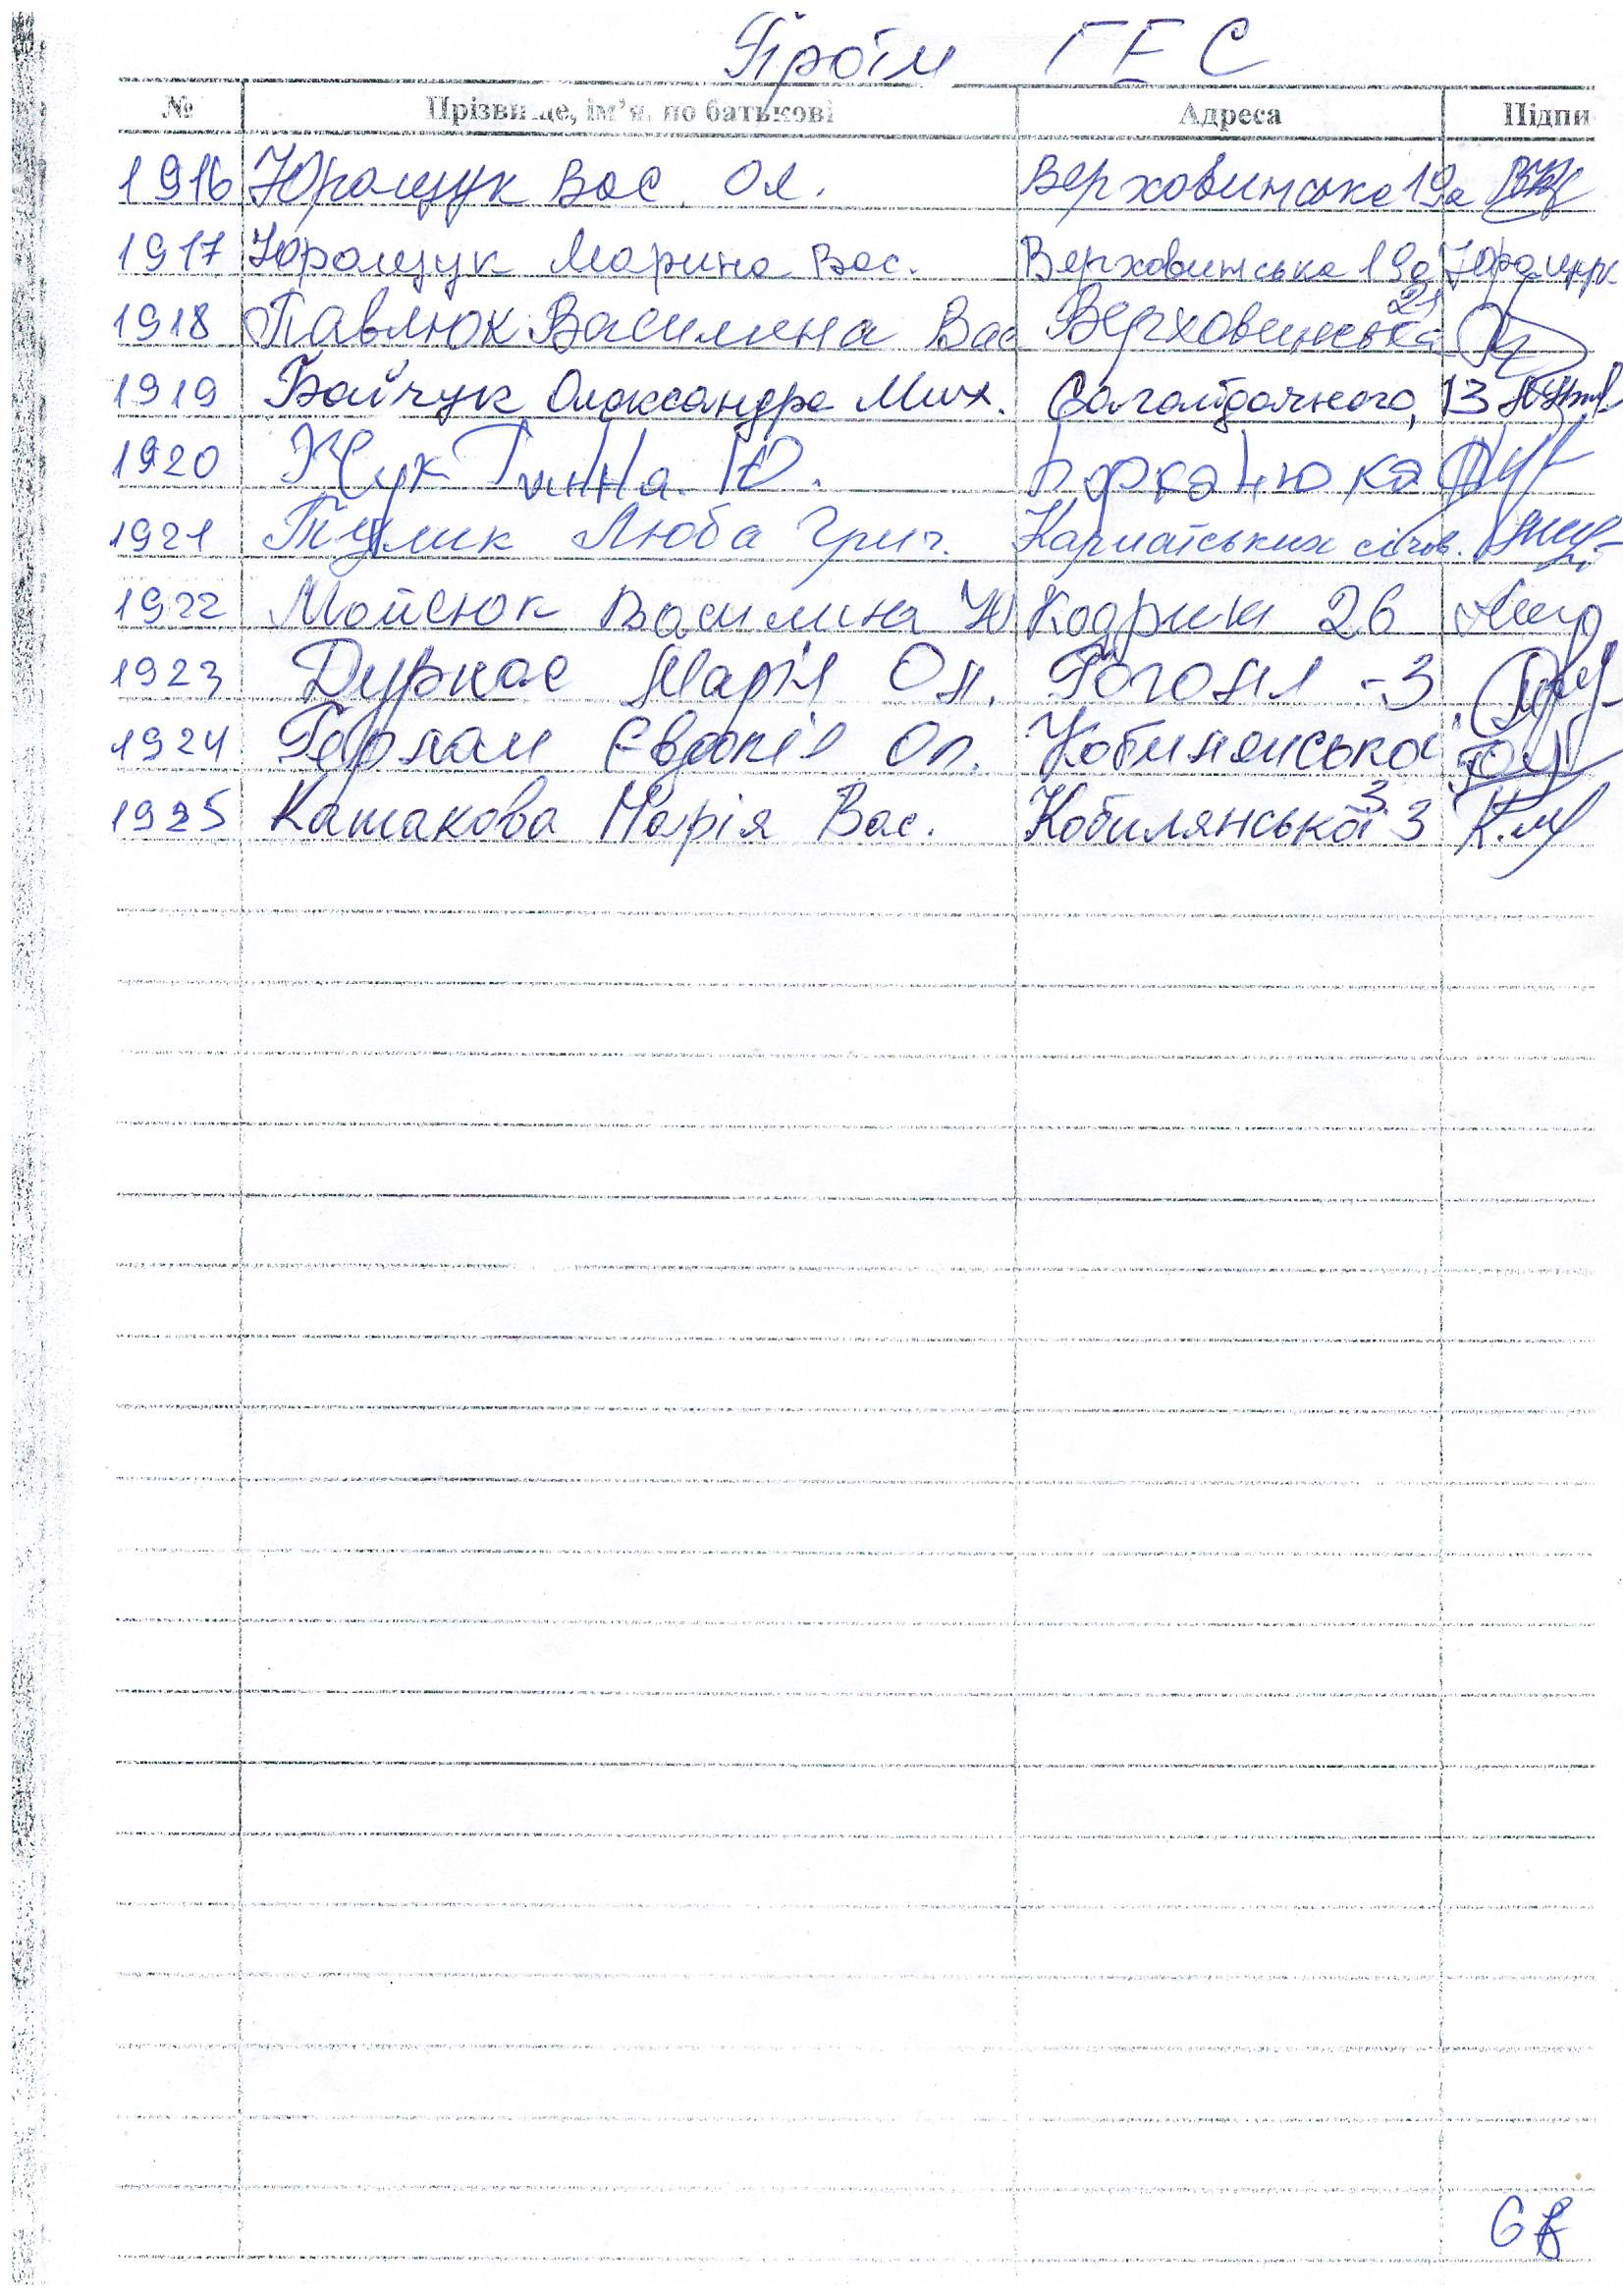 Проти ГЕС
№ Прізвище, ім'я, по батькові Адреса Підпи
1916 Юращук Вас. Ол. Верховинська 19а
1917 Юращук Марина Вас. Верховинська 19а Юращук
1918 Павлюк Василина Вас Верховинська 21
1919 Бойчук Олександра Мих. Сагайдачного, 13
1920 Жук Ганна Ю.
1921 Люба Григ. Карпатських січов.
1922 Мойсюк Василина Ю Кодрин 26
1923 Дуркас Марія Ол. Гоголя - 3
1924 Євдокія Ол. Кобилянська 3
1925 Катакова Марія Вас. Кобилянська 3 К.М